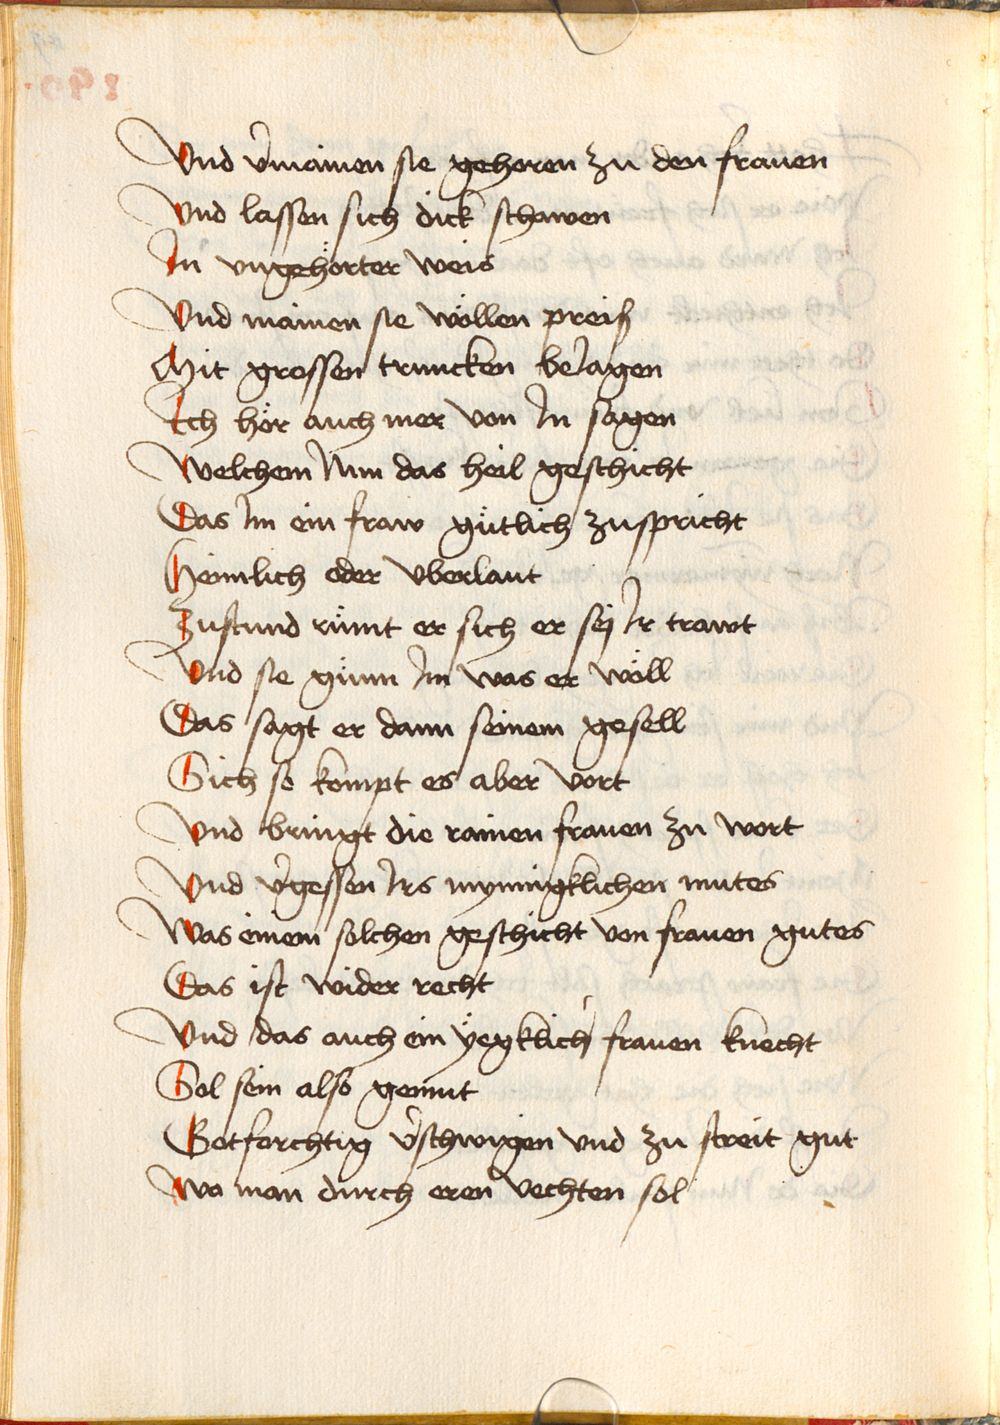 Vnd v̓mainen sie gehoren zu den frauen
Vnd lassen sich dick schawen
In vngehörter weis
Vnd mainen sie wöllen preiß
Mit grossen truncken beIagen
Ich hör auch mer von In sagen
Welchem Nun das heil geschicht
Das Im ein fraw gütlich zuspricht
Heimlich oder vberlaut
Zustund rümt er sich er sej Ir trawt
Vnd sie günn Im was er wöll
Das sagt er dann seinem gesell
Sich so kompt es aber vort
Vnd bringt die rainen frauen zu wort
Vnd v̓gessen Irs mynnigklichen mutes
Was einem solchen geschicht von frauen gutes
Das ist wider recht
Vnd das auch ein yegklich̓ frauen knecht
Sol sein also gemut
Gotforchtig v̓schwigen vnd zu streit gut
Wo man durch eren vechten sol